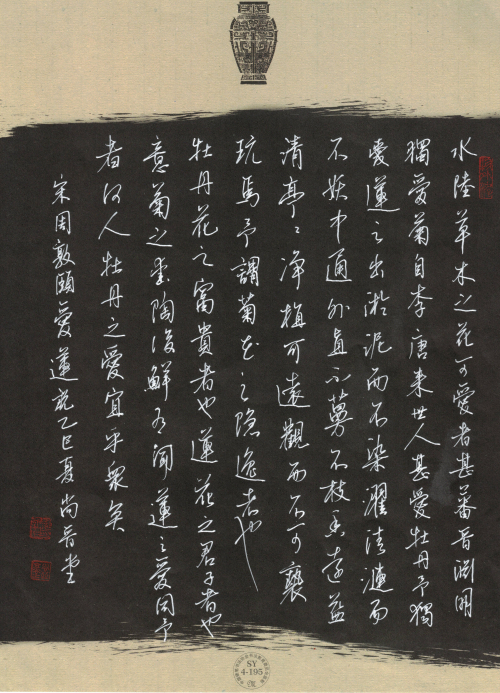 水陸草木之花可愛者甚蕃晉淵明
獨愛菊自李唐来世人甚愛牡丹予獨
愛蓮之出淤泥而不染濯清漣而
不妖中通外直不蔓不枝香遠益
清亭〻净植可遠觀而不可褻
玩焉予謂菊花之隐逸者也
牡丹花之富貴者也蓮花之君子者也
意菊之愛陶後鮮有聞蓮之愛同予
者何人牡丹之愛宜乎衆矣
宋周敦頤愛蓮説乙巳夏尚
SY
4-195